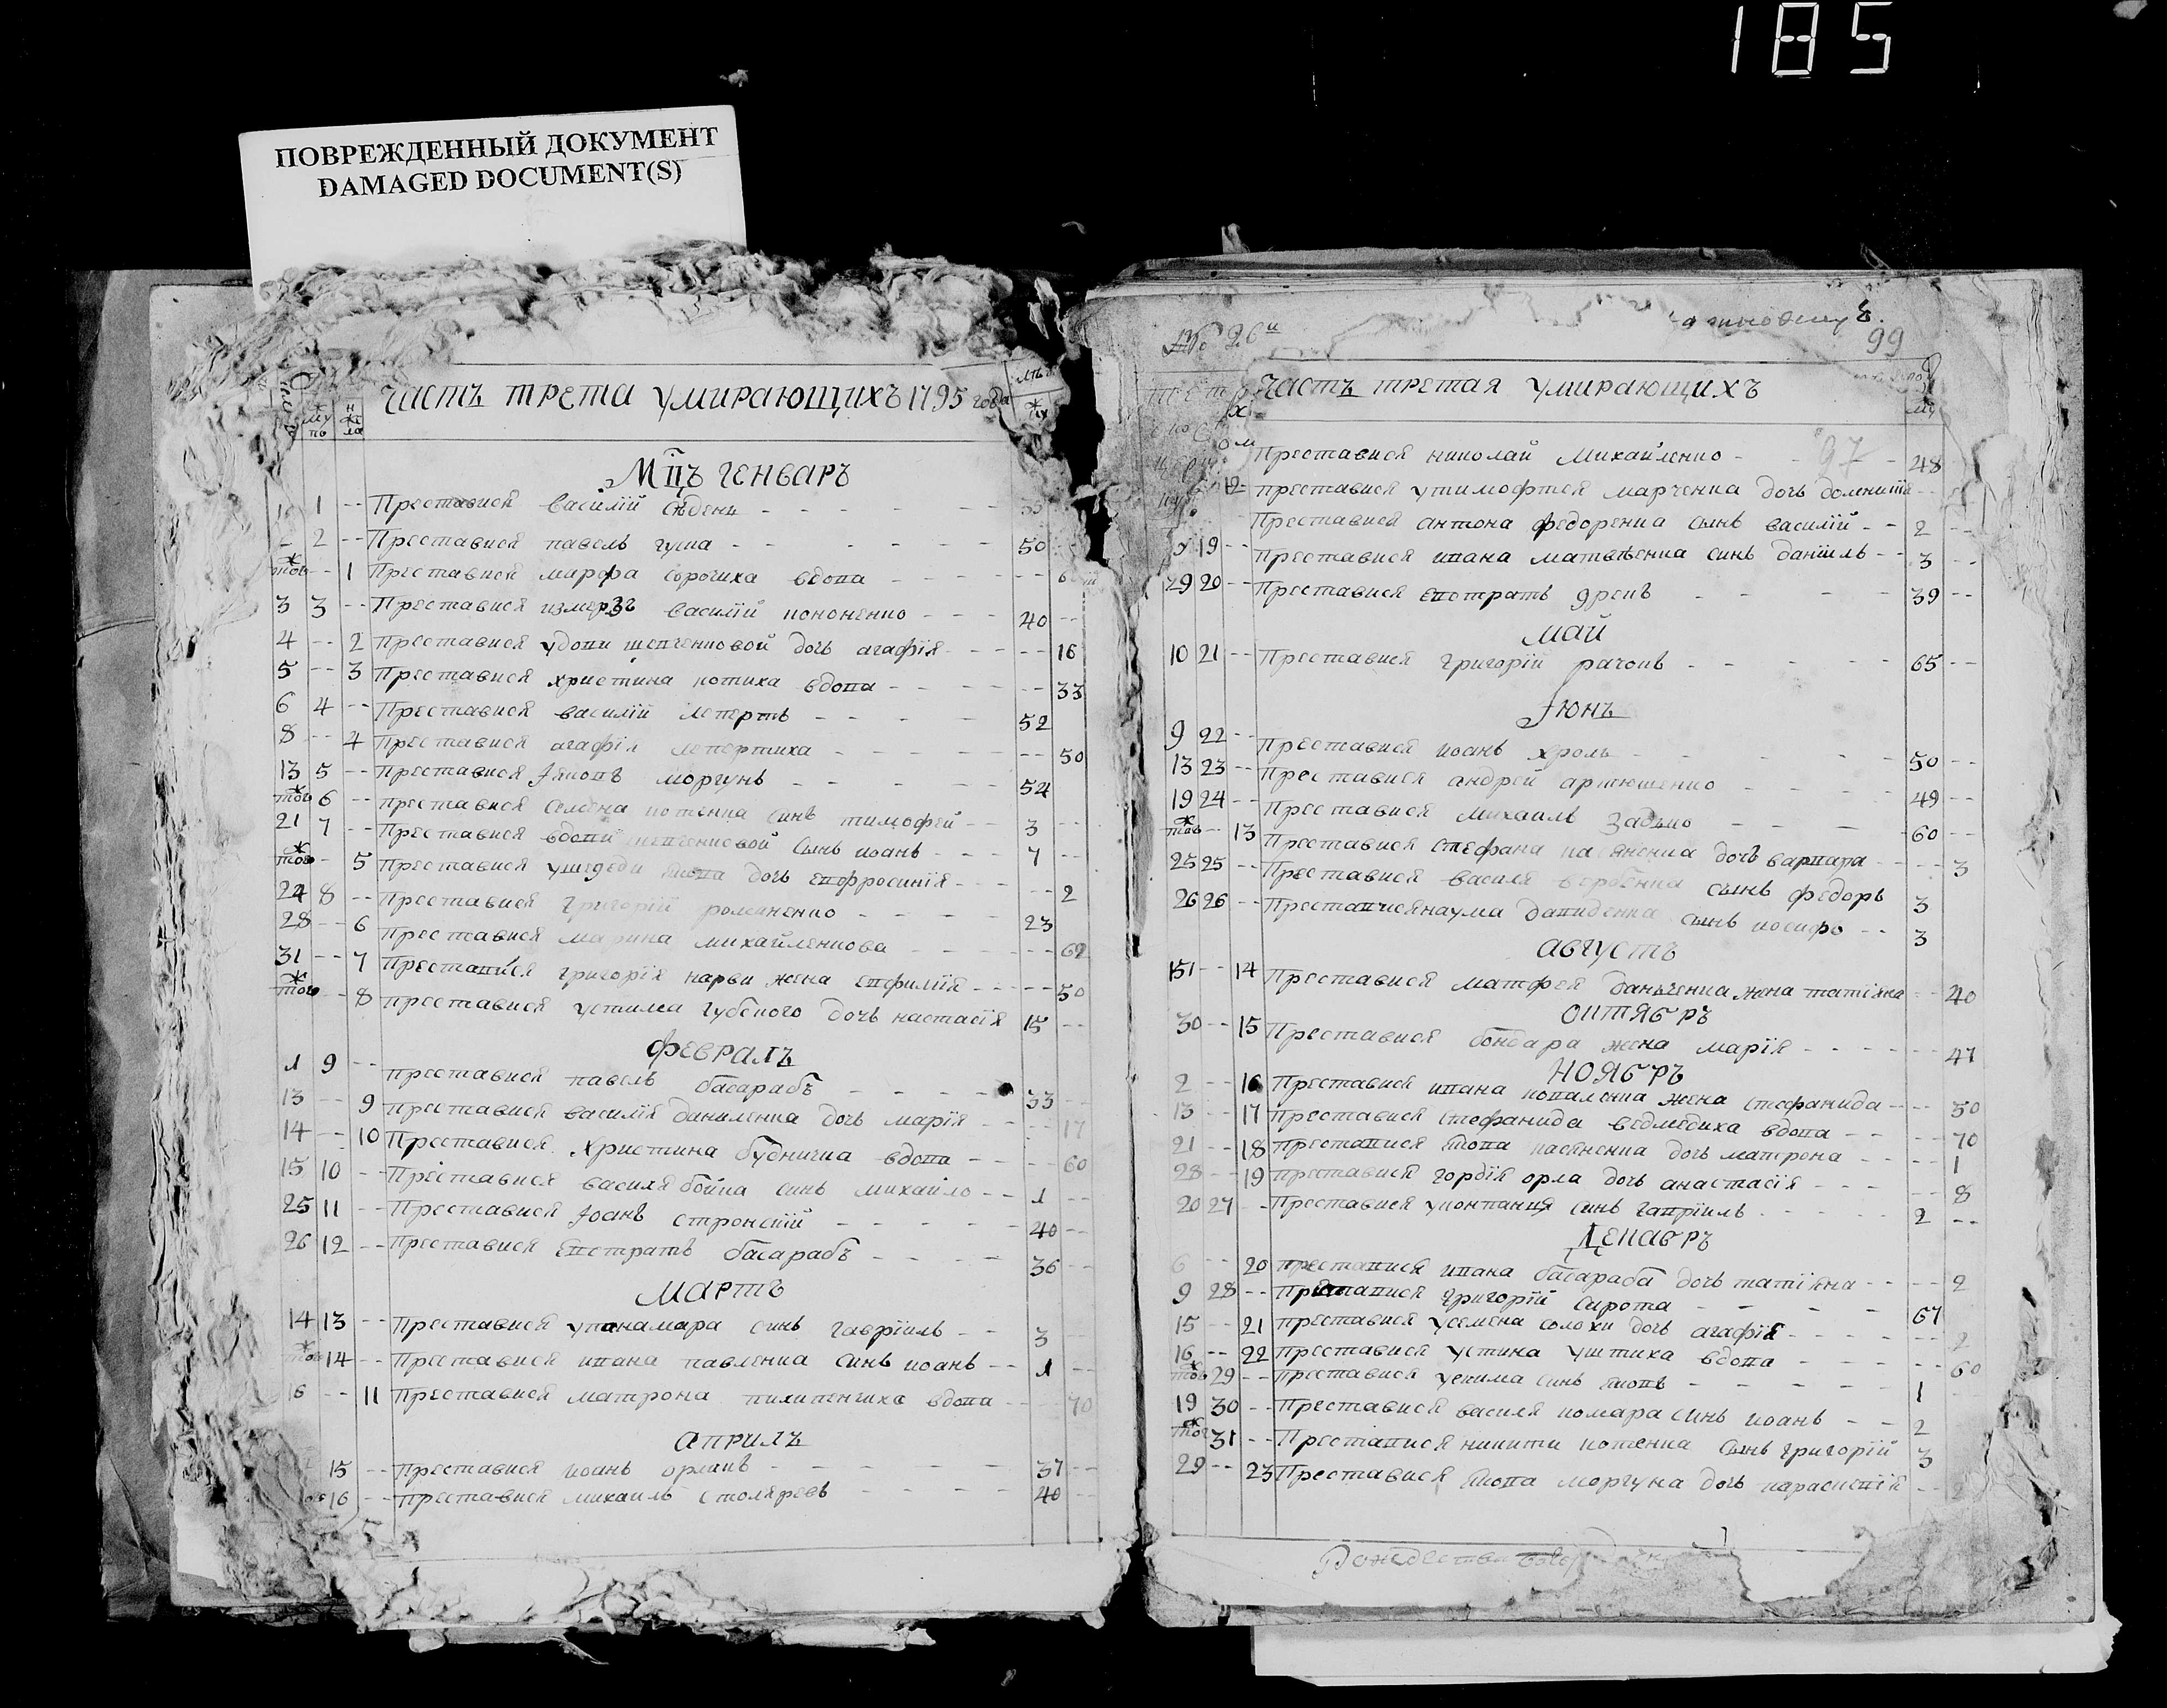 185
ПОВРЕЖДЕННЫЙ ДОКУМЕНТ
DAMAGED DOCUMENT(S)
Часть трета умирающихъ 1795 года
Мцъ генваръ
1 -- Преставися василій -- 
2 -- Преставися павель гуша -- 50
того -- 1 Преставися марфа сорочиха вдопа --
3 3 -- Преставися измерзъ василій кононенко -- 40 --
4 -- 2 Преставися удопи шепченковой дочь агафія -- 16
5 -- 3 Преставися христина котиха вдопа -- 33
6 4 -- Преставися василій леперть -- 52
8 -- 4 Преставися агафія лепертиха -- 50
13 5 -- Преставися Іякопъ моргунъ -- 54
того 6 -- преставися семена котенка синъ тимофей -- 3 --
21 7 -- Преставися вдопи шепченковой сынъ иоанъ -- 7 --
того -- 5 Преставися дочь епфросинія -- 2
24 8 -- Преставися григорій романенко -- 23
28 -- 6 Преставися марина михайленкова --
31 -- 7 Престапися григорія карви жена епфимія -- 50
того -- 8 преставися устима губского дочь настасія 15 --
февралъ
1 9 -- преставися павель басарабъ -- 33 --
13 -- 9 Преставися василія даниленка дочь марія -- 17
14 -- 10 Преставися христина будничка вдопа -- 60
15 10 -- Преставися василя бойка синъ михайло -- 1 --
25 11 -- Преставися Іоанъ стронскій -- 40 --
26 12 -- Преставися Епстратъ басарабъ -- 36 --
мартъ
14 13 -- Преставися упанамара синъ гавріиль -- 3
того 14 -- Преставися ипана павленка синъ иоанъ -- 1 --
16 -- 11 Преставися матрона пихипенчиха вдопа -- 70
априлъ
15 -- преставися иоанъ орланъ -- 37 --
16 -- преставися михаилъ столяревъ -- 40 --
99
часть третая умирающихъ
97
Преставися николай михайленко -- 48
12 преставися утимофтея марченка дочь
Преставися антона федоренка сынъ василій -- 2 --
19 -- Преставися ипана матвѣенка синъ даніиль -- 3 --
29 20 -- Преставися епстратъ -- 39 --
май
10 21 -- Преставися григорій рачокъ -- 65 --
Іюнъ
9 22 -- Преставися иоанъ хроль -- 50 --
13 23 -- Преставися андрей артюшенко -- 49 --
19 24 -- Преставися михаилъ -- 60 --
того -- 13 Преставися стефана касяненка дочь варвара -- 3
25 25 -- Преставися василя вербенка сынъ федоръ 3
26 26 -- Престапися наума дапиденка сынъ иосифъ -- 3
августъ
-- 14 Преставися матфея данченка жена татіяна -- 40
октябръ
30 -- 15 Преставися бондара жена марія -- 47
ноябръ
2 -- 16 Преставися ипана копаленка жена стефанида -- 50
13 -- 17 Преставися стефанида ведмедиха вдопа -- 70
21 -- 18 престапися якопа касяненка дочь матрона -- 1
28 -- 19 преставися гордія орла дочь анастасія -- 8
20 27 -- Преставися синъ гапріиль -- 2 --
декабръ
6 -- 20 престапися ипана басараба дочь татіяна -- 2
9 28 -- Престапися григорій сирота -- 67
15 -- 21 преставися усемена солохи дочь агафія -- 2
16 -- 22 преставися устина уштиха вдопа -- 60
того 29 -- преставися уекима синъ якопъ -- 1
19 30 -- преставися василя комара синъ иоанъ -- 2
того 31 -- Престапися никити котенка сынъ григорій 3
29 -- 23 Преставися якопа моргуна дочь параскепія -- 2